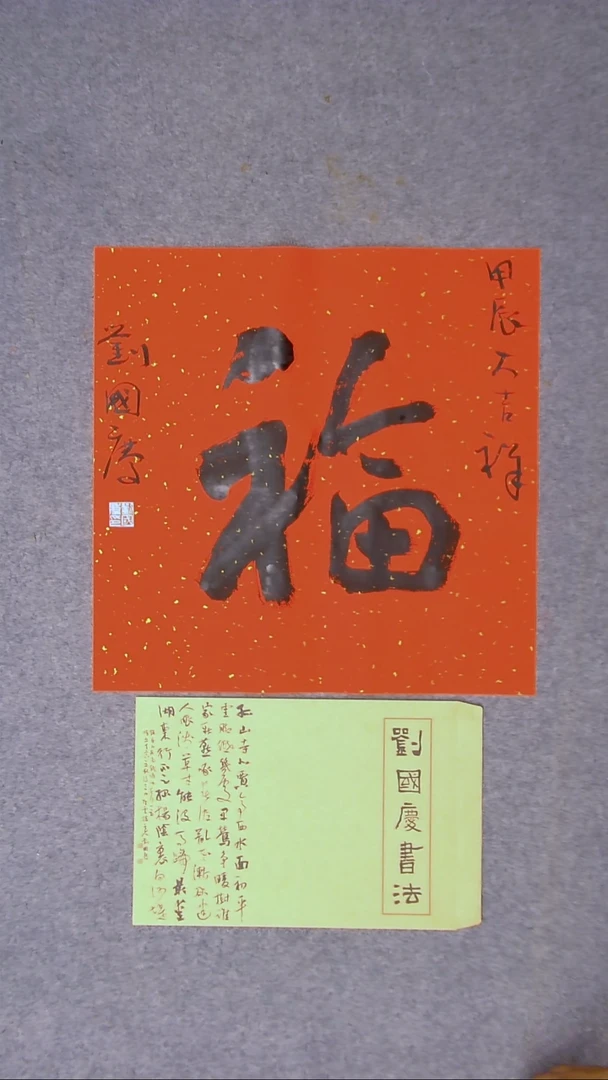 甲辰大吉祥
福
劉國慶
劉國慶書法
孤山寺北賈亭西水面初平
雲腳低幾處早鶯爭暖樹誰
家新燕啄春泥亂花漸欲迷
人眼淺草才能沒馬蹄最愛
湖東行不足綠楊陰裏白沙堤